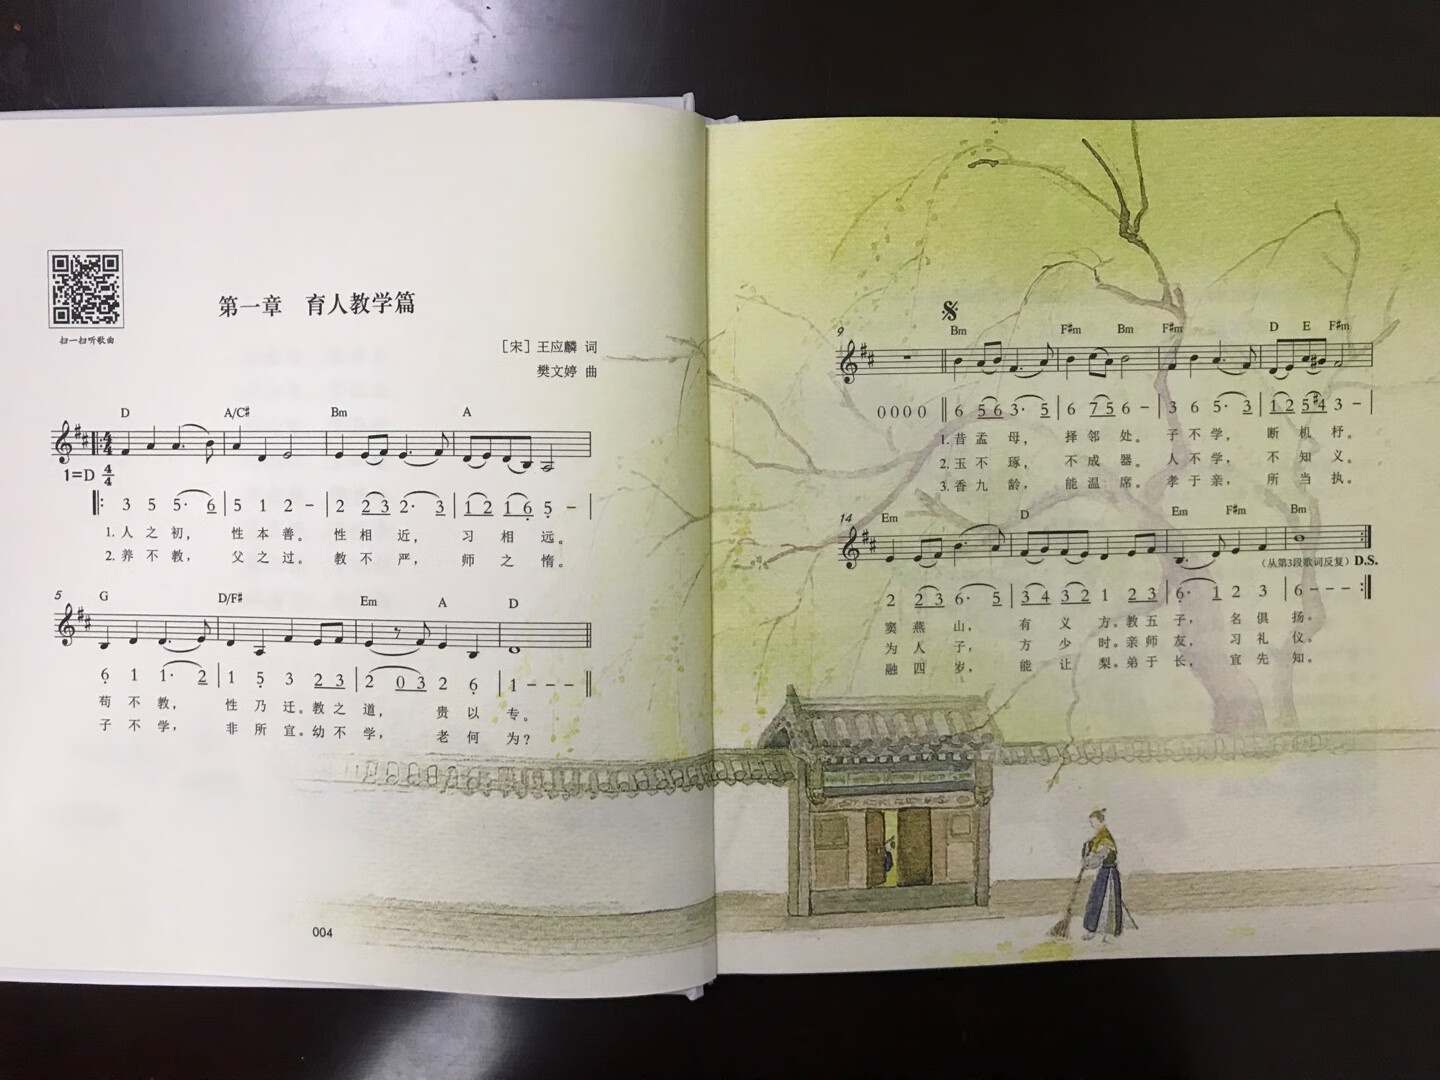 扫一扫听歌曲
第一章 育人教学篇
［宋］王应麟 词
樊文婷 曲
D A/C♯ Bm A
1=D 4/4
‖: 3 5 5· 6 | 5 1 2 – | 2 2 3 2· 3 | 1 2 1 6 5 – |
1. 人之初， 性本善。性相近， 习相远。
2. 养不教， 父之过。教不严， 师之惰。
5
G D/F♯ Em A D
6 1 1· 2 | 1 5 3 2 3 | 2 0 3 2 6 | 1 – – – ‖
苟不教， 性乃迁。教之道， 贵以专。
子不学， 非所宜。幼不学， 老何为？
004
9
Bm F♯m Bm F♯m D E F♯m
0 0 0 0 ‖ 6 5 6 3· 5 | 6 7 5 6 – | 3 6 5· 3 | 1 2 5 ♯4 3 – |
1. 昔孟母， 择邻处。子不学， 断机杼。
2. 玉不琢， 不成器。人不学， 不知义。
3. 香九龄， 能温席。孝于亲， 所当执。
14
Em D Em F♯m Bm
（从第3段歌词反复）D.S.
2 2 3 6· 5 | 3 4 3 2 1 2 3 | 6· 1 2 3 | 6 – – – :‖
窦燕山， 有义方。教五子， 名俱扬。
为人子， 方少时。亲师友， 习礼仪。
融四岁， 能让梨。弟于长， 宜先知。